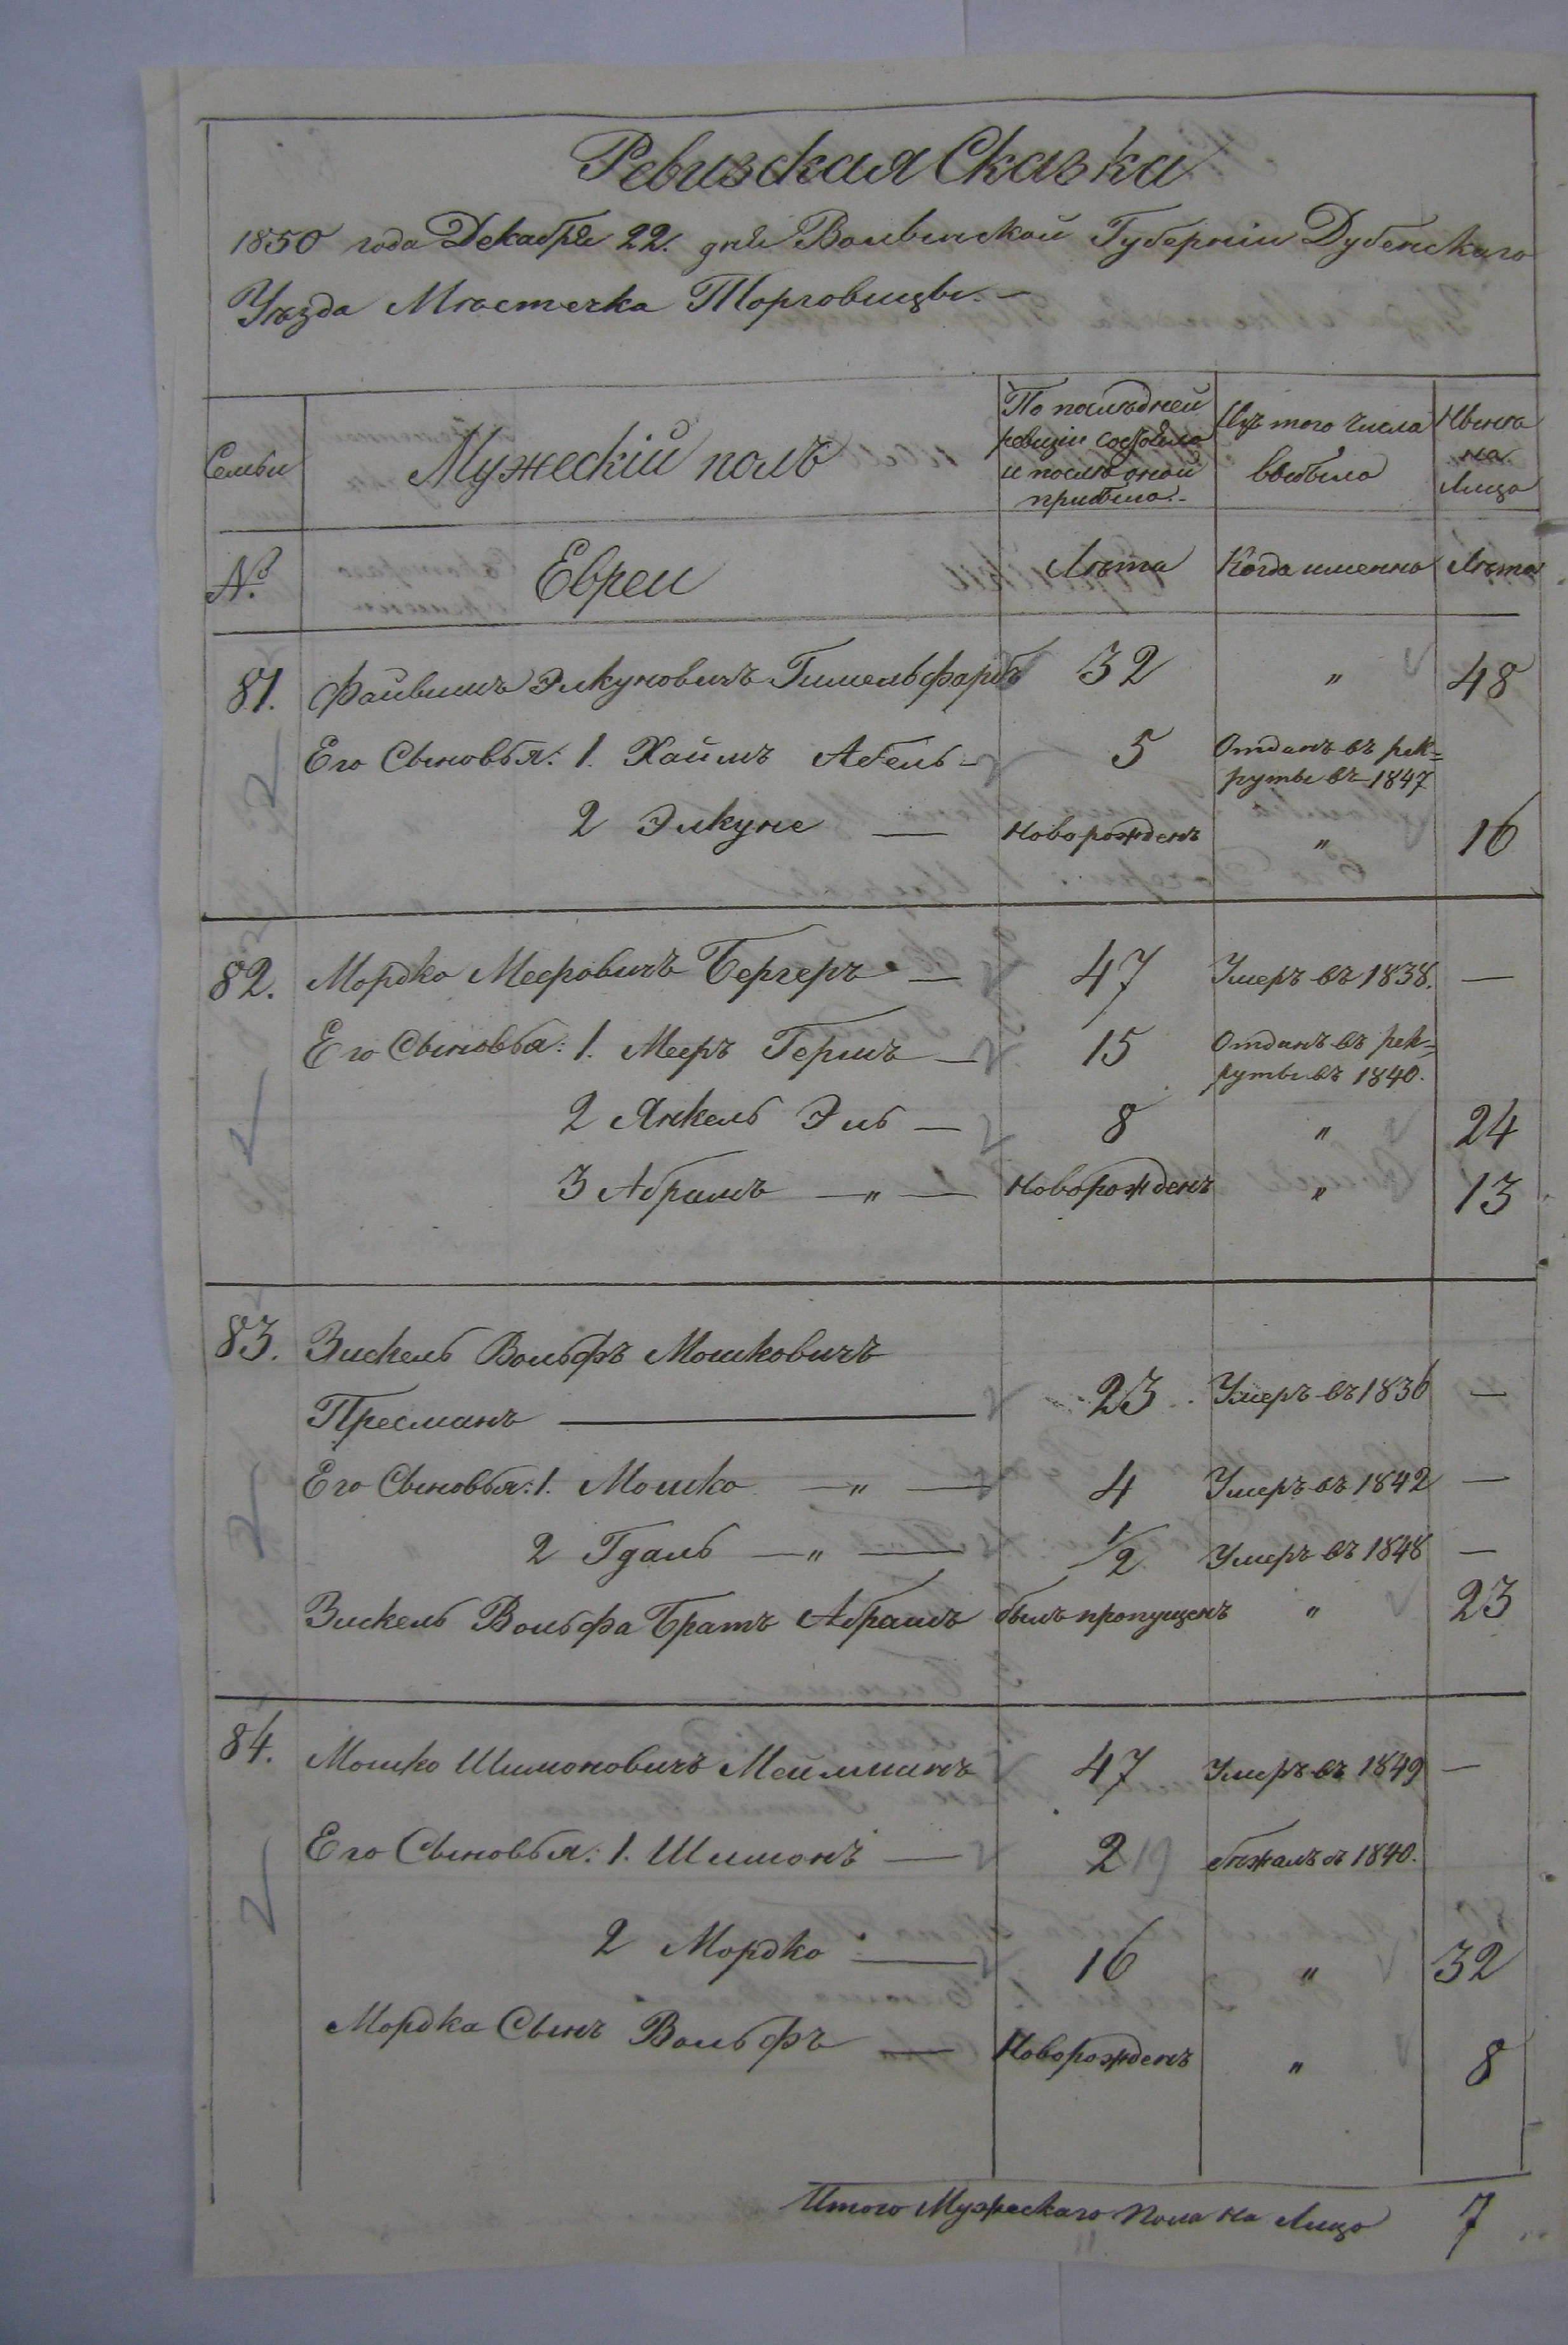 Ревизская Сказка
1850 года Декабря 22. дня Волынской Губерніи Дубенскаго
Уѣзда Мѣстечка Торговицы. —
Семьи
Мужескій полъ
По послѣдней ревизіи состояло и послѣ оной прибыло. -
Изъ того числа выбыло
Нынѣ на Лицо
№.
Евреи
Лѣта Когда именно Лѣта
81. Файвишъ Элкуновичъ Гимельфарбъ 32 " 48
Его Сыновья: 1. Хаимъ Абель - 5 Отданъ въ рек=
руты въ 1847
2 Элкуне — Новорожденъ " 16
82. Мордко Мееровичъ Бергеръ — 47 Умеръ въ 1838. —
Его Сыновья: 1. Мееръ Гершъ — 15 Отданъ въ рек=
руты въ 1840.
2 Янкель Эль — 8 " 24
3 Абрамъ —"— Новорожденъ " 13
83. Зискель Вольфъ Мошковичъ
Пресманъ — 23 Умеръ въ 1836 —
Его Сыновья: 1. Мошко —"— 4 Умеръ въ 1842 —
2 Гдаль —"— 1/2 Умеръ въ 1848 —
Зискель Вольфа Братъ Абрамъ былъ пропущенъ " 23
84. Мошко Шимоновичъ 47 Умеръ въ 1849 —
Его Сыновья: 1. Шимонъ — бѣжалъ въ 1840.
2 Мордко — 16 " 32
Мордка Сынъ Вольфъ — Новорожденъ " 8
Итого Мужескаго пола на Лицо 7